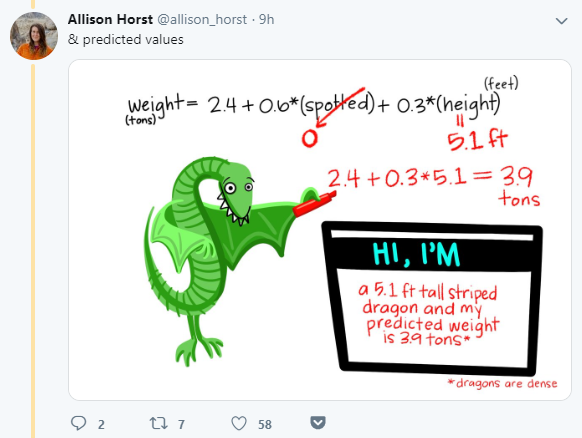 Allison Horst @allison_horst · 9h
& predicted values
(feet)
weight = 2.4 + 0.6*(spotted) + 0.3*(height)
(tons)
0
=
5.1 ft
2.4 + 0.3*5.1 = 3.9
tons
HI, I'M
a 5.1 ft tall striped
dragon and my
predicted weight
is 3.9 tons*
*dragons are dense
2 7 58